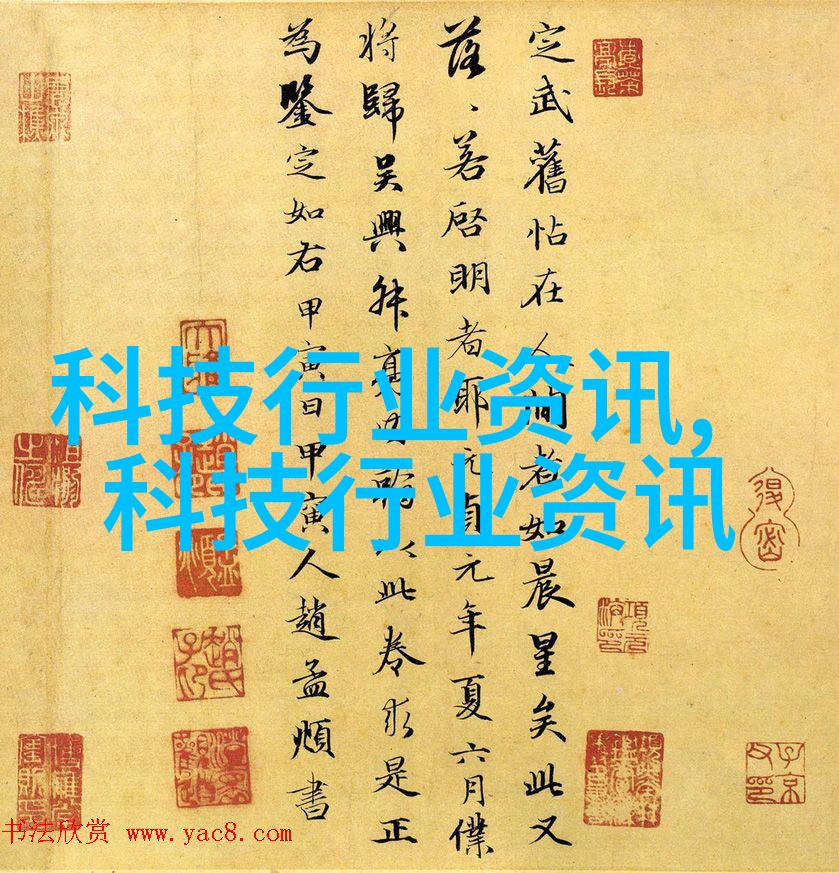 定武舊帖在人間者如晨星矣此又
落、若啓明者耶元貞元年夏六月僕
将歸吴興叔亮内翰以此卷求是正
為鑒定如右甲寅日甲寅人趙孟頫書
科技行业资讯,
科技行业资讯
书法欣赏 www.yac8.com